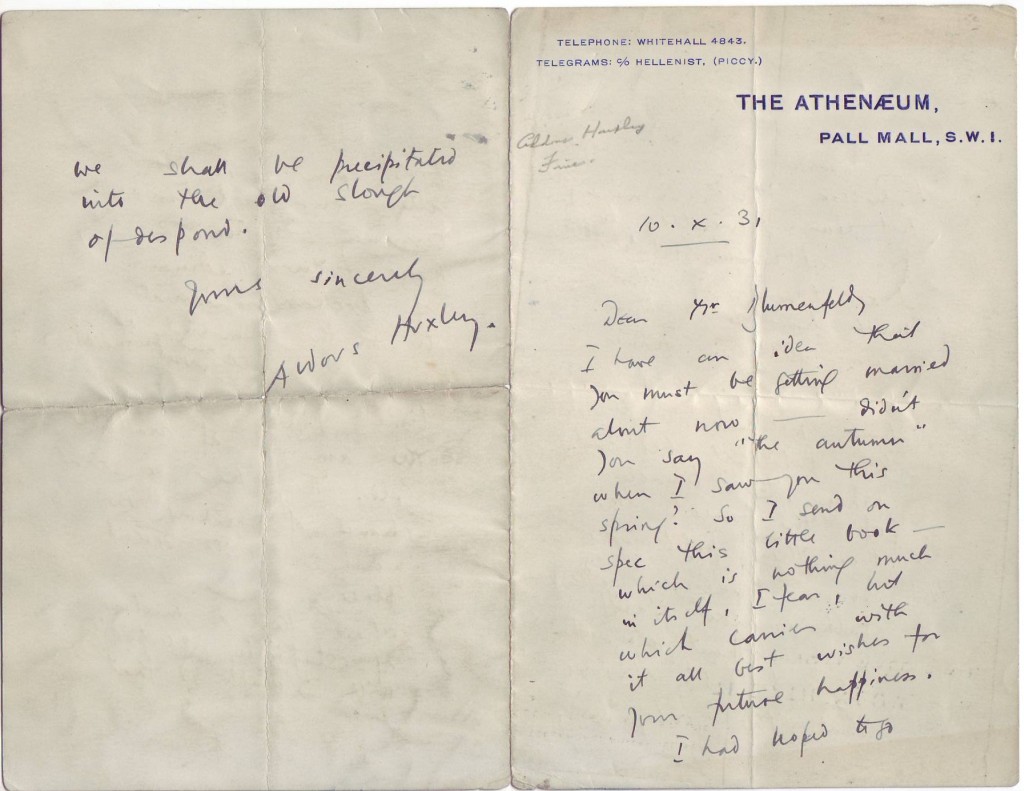 TELEPHONE: WHITEHALL 4843.
TELEGRAMS: C/O HELLENIST, (PICCY.)
THE ATHENÆUM,
PALL MALL, S.W.1.
Aldous Huxley
10. X. 31
Dear Mr Blumenfeld,
I have an idea that
you must be getting married
about now — didn't
you say "the autumn"
when I saw you this
spring? So I send on
spec this little book —
which is nothing much
in itself, I fear, but
which carries with
it all best wishes for
your future happiness.
I had hoped to go
we shall be precipitated
into the old slough
of despond.
Yours sincerely
Aldous Huxley.